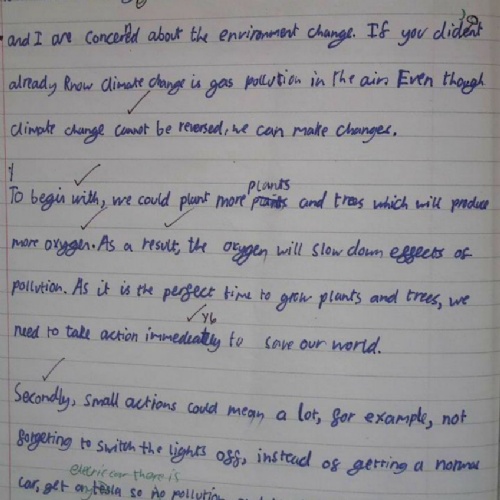 and I are concerned about the environment change. If you dident
already know climate change is gas pollution in the air. Even though
climate change cannot be reversed, we can make changes.
To begin with, we could plant more plants and trees which will produce
more oxygen. As a result, the oxygen will slow down effects of
pollution. As it is the perfect time to grow plants and trees, we
need to take action immediately to save our world.
Secondly, small actions could mean a lot, for example, not
forgeting to switch the lights off, instead of getting a normal
electric car there is
car, get a tesla so no pollution